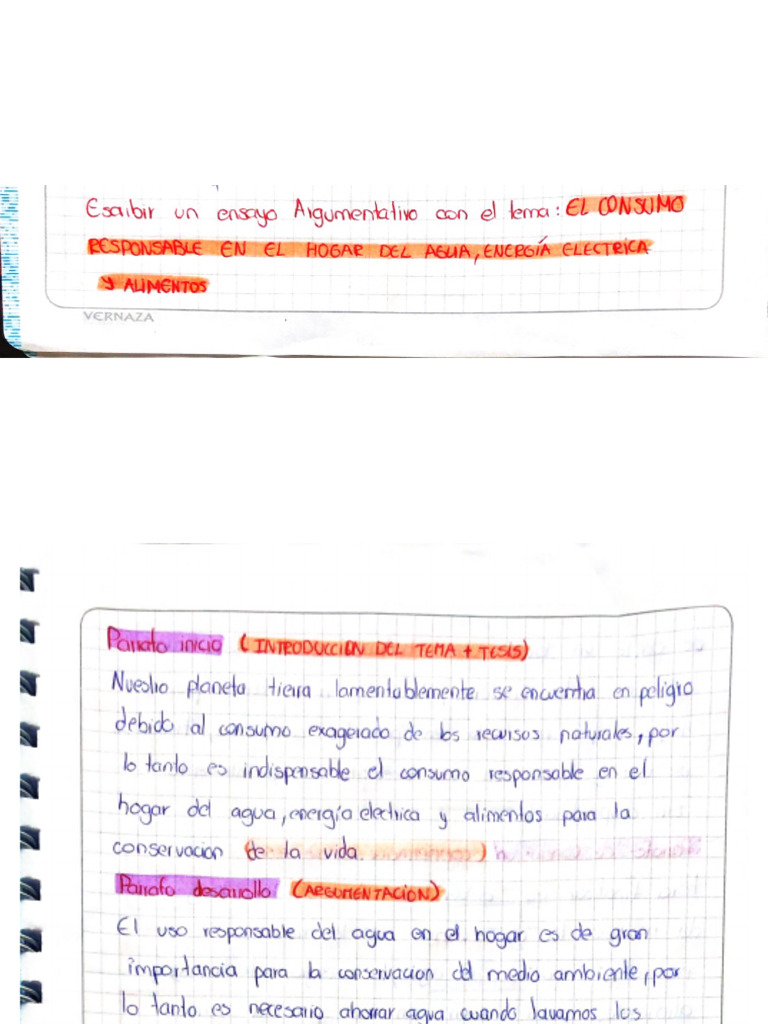 Escribir un ensayo Argumentativo con el tema: EL CONSUMO
RESPONSABLE EN EL HOGAR DEL AGUA, ENERGÍA ELECTRICA
Y ALIMENTOS
VERNAZA
Parrafo inicio (INTRODUCCION DEL TEMA + TESIS)
Nuestro planeta tierra lamentablemente se encuentra en peligro
debido al consumo exagerado de los recursos naturales, por
lo tanto es indispensable el consumo responsable en el
hogar del agua, energía electrica y alimentos para la
conservacion de la vida.
Parrafo desarrollo (ARGUMENTACION)
El uso responsable del agua en el hogar es de gran
importancia para la conservacion del medio ambiente, por
lo tanto es necesario ahorrar agua cuando lavamos los